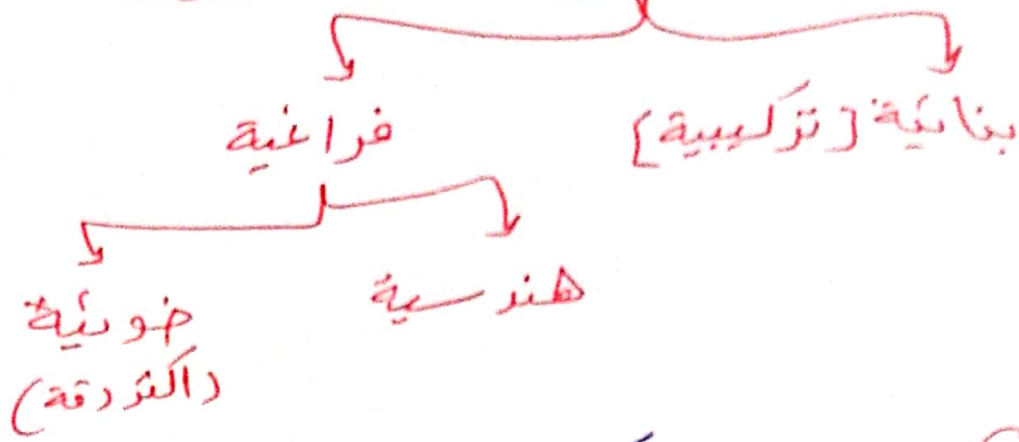 بنائية [تركيبية]
فراغية
هندسية
ضوئية
(اكثر دقة)